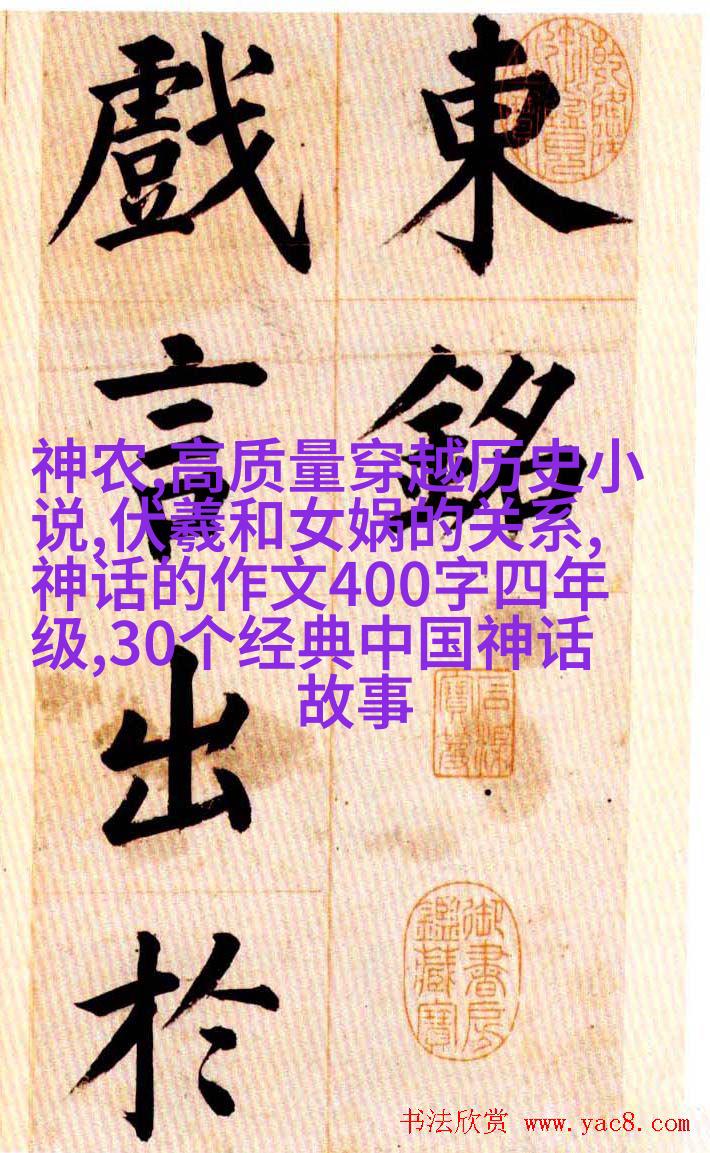 東銘
戲言出於
神农,高质量穿越历史小
说,伏羲和女娲的关系,
神话的作文400字四年
级,30个经典中国神话
故事
御書房
鑑藏寶
书法欣赏 www.yac8.com